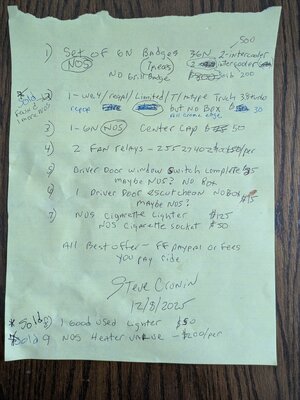 500
1) Set of GN Badges 3GN 2-intercooler
NOS 7 pieces 2 intercooler
NO Grill Badge 200
* Sold 2) 1- we4/regal/Limited/T/mtype Trunk
Found 1 more repop NOS but No Box 30
full chrome edge
3) 1-GN NOS Center Cap 50
4) 2 FAN relays - /per
5) Driver Door window switch complete
maybe NOS? No Box
6) 1 Driver Door escutcheon No Box $15
maybe NOS?
7) NOS Cigarette Lighter $125
NOS Cigarette socket $50
All Best offer - FF paypal or Fees
you pay ride
Steve Cronin
12/8/2025
* Sold 8) 1 Good used Lighter $50
* Sold 9 NOS Heater Valve - $200/per